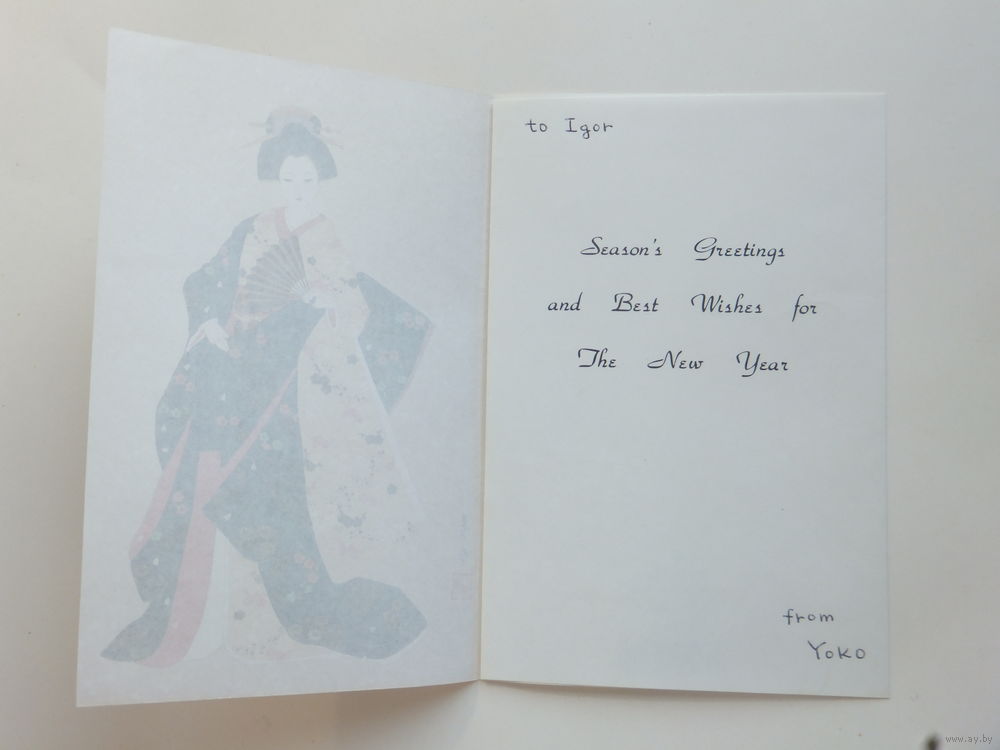 to Igor
Season's Greetings
and Best Wishes for
The New Year
from
Yoko
www.ay.by